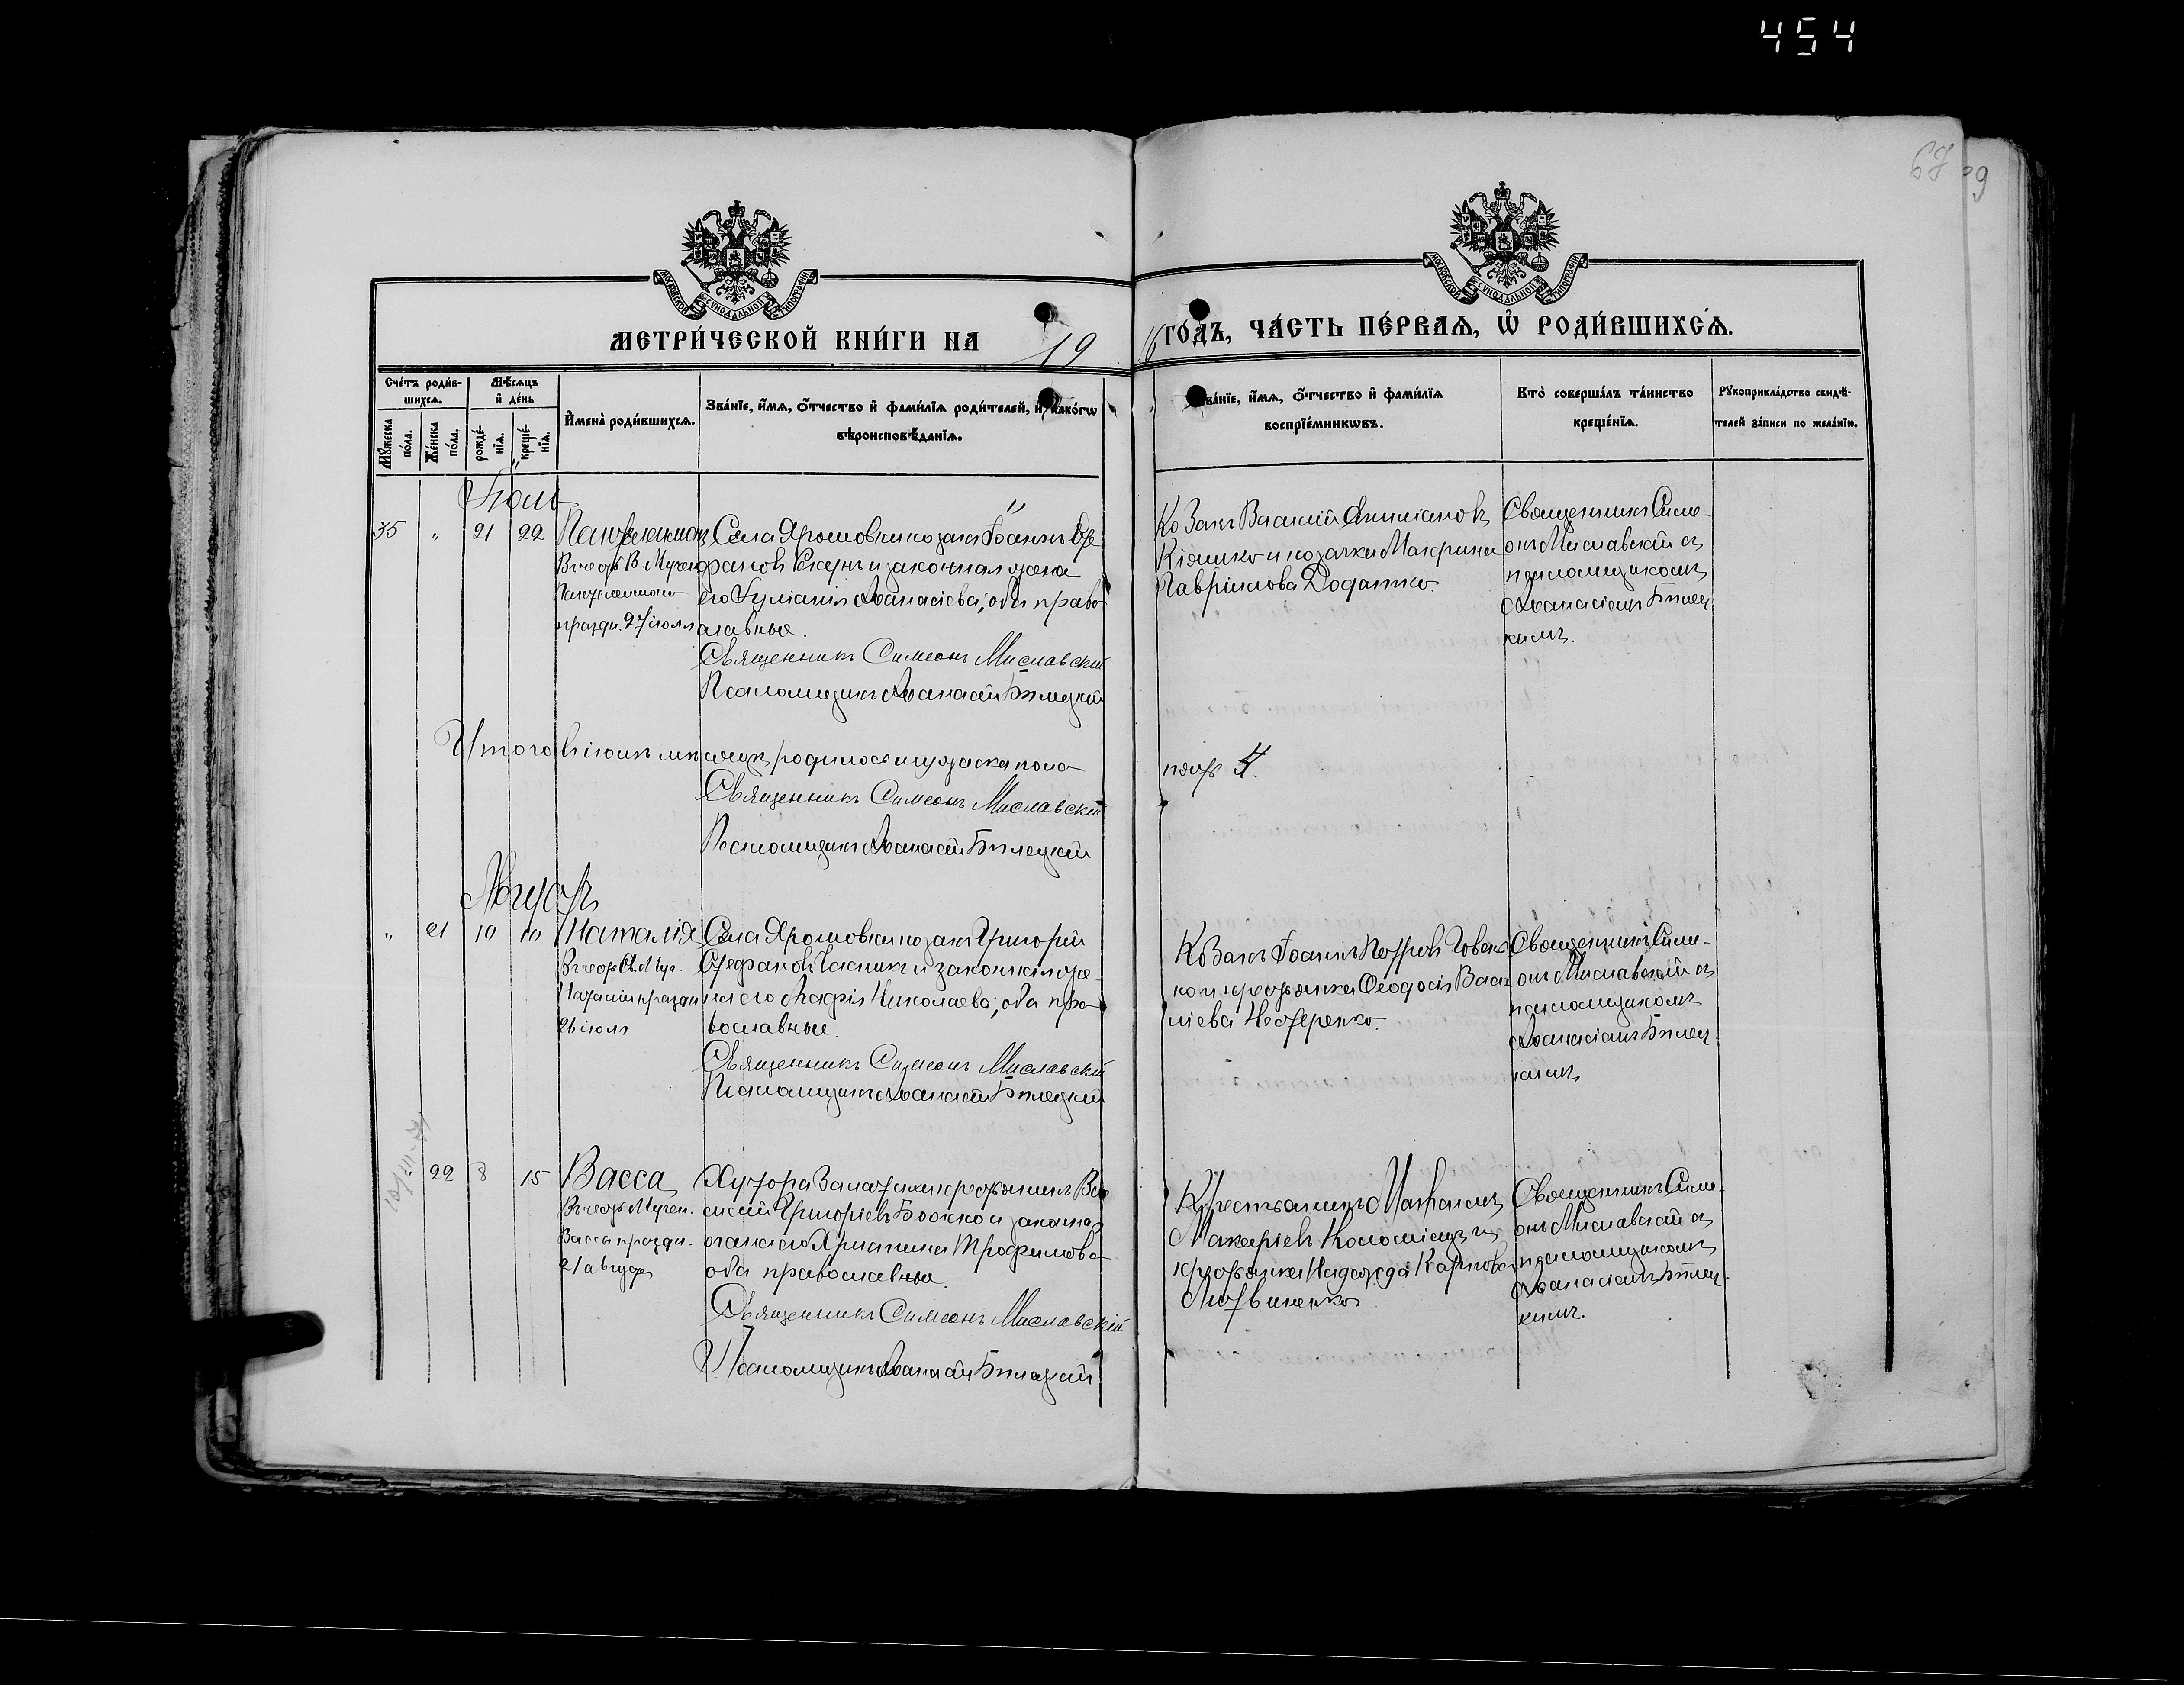 454
67
99
МОСКОВСКОЙ СѴНОДАЛЬНОЙ ТИПОГРАФІИ
МОСКОВСКОЙ СѴНОДАЛЬНОЙ ТИПОГРАФІИ
МЕТРИ́ЧЕСКОЙ КНИ́ГИ НА 1916 ГО́ДЪ, ЧА́СТЬ ПЕ́РВАѦ, Ѡ҆ РОДИ́ВШИХСѦ.
Сче́тъ роди́в-
шихсѧ.
Мꙋ́жеска по́ла.
Же́нска по́ла.
Мѣ́сѧцъ
и҆ де́нь
рожде́нїѧ.
креще́нїѧ.
И҆мена̀ роди́вшихсѧ.
Зва́нїе, и҆́мѧ, ѻ҆́тчество и҆ фамилїѧ роди́телей, и҆ како́гѡ
вѣроисповѣ́данїѧ.
Зва́нїе, и҆́мѧ, ѻ҆́тчество и҆ фамилїѧ
воспрїе́мникѡвъ.
Кто̀ соверша́лъ та́инство
креще́нїѧ.
Рꙋкоприкла́дство свидѣ́-
телей за́писи по жела́нїю.
Іюль
35 " 21 22 Пантелеимонъ
Въ честь В. Мучен
Пантелеимона
праздн. 27 іюля
Села Ярошовки козакъ Іоаннъ Сте
фановъ и законная жена
его Іуліанія Аѳанасіева; оба право
славные.
Священникъ Симеонъ Миславскій
Псаломщикъ Аѳанасій Бѣлецкій
Козакъ Василій
и козачка Макрина
Гавріилова Додатко.
Священникъ Симе-
онъ Миславскій съ
псаломщикомъ
Аѳанасіемъ Бѣлец-
кимъ.
Итого въ іюлѣ мѣсяцѣ родилось мужеска пола
пять 4.
Священникъ Симеонъ Миславскій
Псаломщикъ Аѳанасій Бѣлецкій
Августъ
" 21 10 10 Наталія
Въ честь Св. Муч.
Наталіи праздн
26 іюля
Села Ярошовки козакъ Григорій
Стефановъ Часникъ и законная же-
на его Марія Николаева; оба пра-
вославные.
Священникъ Симеонъ Миславскій
Псаломщикъ Аѳанасій Бѣлецкій
Козакъ Іоаннъ Петровъ
и крестьянка Ѳеодосія Васи
ліева Нестеренко.
Священникъ Симе-
онъ Миславскій съ
псаломщикомъ
Аѳанасіемъ Бѣлец-
кимъ
22 8 15 Васса
Въ честь Мучен.
Вассы праздн.
21 августа
Хутора крестьянинъ Ва
силій Григоріевъ Божко и законная
жена его Христина Трофимова
оба православные.
Священникъ Симеонъ Миславскій
Псаломщикъ Аѳанасій Бѣлецкій
Крестьянинъ
Макаріевъ Коломіецъ и
крестьянка Надежда Карпова
Литвиненко
Священникъ Симе-
онъ Миславскій съ
псаломщикомъ
Аѳанасіемъ Бѣлец-
кимъ.